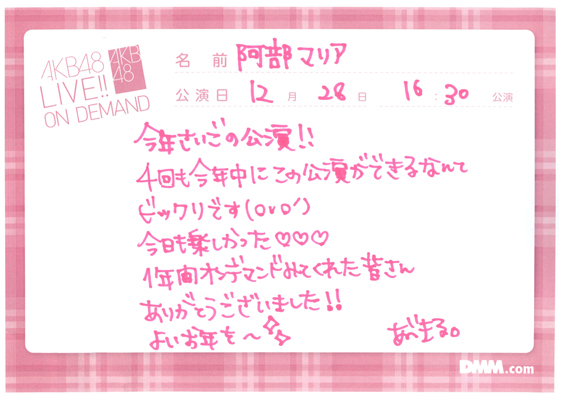 AKB48
LIVE!!
ON DEMAND
AKB
48
名 前 阿部マリア
公演日 12 月 28 日 16 : 30 公演
今年さいごの公演!!
4回も今年中にこの公演ができるなんて
ビックリです(ovo')
今日も楽しかった♡♡♡
1年間オンデマンドみてくれた皆さん
ありがとうございました!!
よいお年を〜
あべまる。
DMM.com